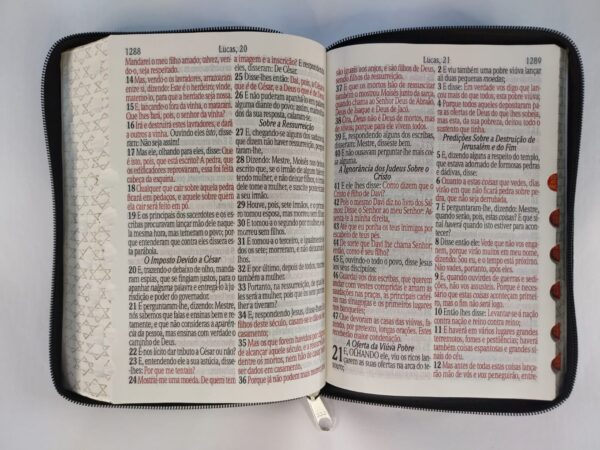 1288
Lucas, 20
Mandarei o meu filho amado; talvez, ven-
do-o, seja respeitado.
14 Mas, vendo-o os lavradores, arrazoaram
entre si, dizendo: Este é o herdeiro; vinde,
matemo-lo, para que a herdade seja nossa.
15 E, lançando-o fora da vinha, o mataram.
Que lhes fará, pois, o senhor da vinha?
16 Irá e destruirá estes lavradores, e dará
a outros a vinha. Ouvindo eles isto, disse-
ram: Não seja assim!
17 Mas ele, olhando para eles, disse: Que é
isto, pois, que está escrito? A pedra, que
os edificadores reprovaram, essa foi feita
cabeça da esquina.
18 Qualquer que cair sobre aquela pedra
ficará em pedaços, e aquele sobre quem
ela cair será feito em pó.
19 E os principais dos sacerdotes e os es-
cribas procuravam lançar mão dele naque-
la mesma hora, mas temeram o povo; por-
que entenderam que contra eles dissera es-
ta parábola.
O Imposto Devido a César
20 E, trazendo-o debaixo de olho, manda-
ram espias, que se fingiam justos, para o
apanhar nalguma palavra e entregá-lo à ju-
risdição e poder do governador.
21 E perguntaram-lhe, dizendo: Mestre,
nós sabemos que falas e ensinas bem e re-
tamente, e que não consideras a aparên-
cia da pessoa, mas ensinas com verdade o
caminho de Deus.
22 É-nos lícito dar tributo a César ou não?
23 E, entendendo ele a sua astúcia, disse-
-lhes: Por que me tentais?
24 Mostrai-me uma moeda. De quem tem
a imagem e a inscrição? E, respondendo
eles, disseram: De César.
25 Disse-lhes então: Dai, pois, a César o
que é de César, e a Deus o que é de Deus.
26 E não puderam apanhá-lo em palavra
alguma diante do povo; e, maravilha-
dos da sua resposta, calaram-se.
Sobre a Ressurreição
27 E, chegando-se alguns dos saduceus,
que dizem não haver ressurreição, pergun-
taram-lhe,
28 Dizendo: Mestre, Moisés nos deixou
escrito que, se o irmão de algum falecer,
tendo mulher, e não deixar filhos, o irmão
dele tome a mulher, e suscite posteridade
a seu irmão.
29 Houve, pois, sete irmãos, e o primei-
ro tomou esposa, mas morreu sem filhos;
30 E tomou-a o segundo por mulher, e ele
morreu sem filhos.
31 E tomou-a o terceiro, e igualmente
os sete; morreram, e não deixaram
32 E por último, depois de todos, morreu
também a mulher.
33 Portanto, na ressurreição, de qual de-
les será a mulher, pois que os sete por mu-
lher a tiveram?
34 E, respondendo Jesus, disse-lhes: Os
filhos deste século, casam-se e dão-se em
casamento;
35 Mas os que forem havidos por dignos
de alcançar aquele século, e a ressurreição
dentre os mortos, nem hão de casar, nem
ser dados em casamento;
36 Porque já não podem mais morrer;
Lucas, 21
1289
são iguais aos anjos, e são filhos de Deus,
sendo filhos da ressurreição.
37 E que os mortos hão de ressuscitar
também o mostrou Moisés junto da sarça,
quando chama ao Senhor Deus de Abraão,
Deus de Isaque e Deus de Jacó.
38 Ora, Deus não é Deus de mortos, mas
de vivos; porque para ele vivem todos.
39 E, respondendo alguns dos escribas,
disseram: Mestre, disseste bem.
40 E não ousavam perguntar-lhe mais coi-
sa alguma.
A Ignorância dos Judeus Sobre o
Cristo
41 E ele lhes disse: Como dizem que o
Cristo é filho de Davi?
42 Pois o mesmo Davi diz no livro dos Sal-
mos: Disse o Senhor ao meu Senhor: As-
senta-te à minha direita,
43 Até que eu ponha os teus inimigos por
escabelo de teus pés.
44 De sorte que Davi lhe chama Senhor;
então, como é seu filho?
45 E, ouvindo-o todo o povo, disse Jesus
aos seus discípulos:
46 Guardai-vos dos escribas, que querem
andar com vestes compridas e amam as
saudações nas praças, as principais cadei-
ras nas sinagogas e os primeiros lugares
nos banquetes;
47 Que devoram as casas das viúvas, fa-
zendo, por pretexto, longas orações. Estes
receberão maior condenação.
A Oferta da Viúva Pobre
21 E, OLHANDO ele, viu os ricos lan-
çarem as suas ofertas na arca do te-
souro;
2 E viu também uma pobre viúva lançar
ali duas pequenas moedas;
3 E disse: Em verdade vos digo que lan-
çou mais do que todos, esta pobre viúva;
4 Porque todos aqueles depositaram pa-
ra as ofertas de Deus do que lhes sobeja;
mas esta, da sua pobreza, deitou todo o
sustento que tinha.
Predições Sobre a Destruição de
Jerusalém e do Fim
5 E, dizendo alguns a respeito do templo,
que estava adornado de formosas pedras
e dádivas, disse:
6 Quanto a estas coisas que vedes, dias
virão em que não ficará pedra sobre pe-
dra, que não seja derrubada.
7 E perguntaram-lhe, dizendo: Mestre,
quando serão, pois, estas coisas? E que si-
nal haverá quando isto estiver para acon-
tecer?
8 Disse então ele: Vede que não vos enga-
nem, porque virão muitos em meu nome,
dizendo: Sou eu, e o tempo está próximo.
Não vades, portanto, após eles.
9 E, quando ouvirdes de guerras e sedi-
ções, não vos assusteis. Porque é necessá-
rio que estas coisas aconteçam primei-
ro, mas o fim não será logo.
10 Então lhes disse: Levantar-se-á nação
contra nação e reino contra reino;
11 E haverá em vários lugares grandes
terremotos, fomes e pestilências; haverá
também coisas espantosas e grandes si-
nais do céu.
12 Mas antes de todas estas coisas lança-
rão mão de vós e vos perseguirão, entre-